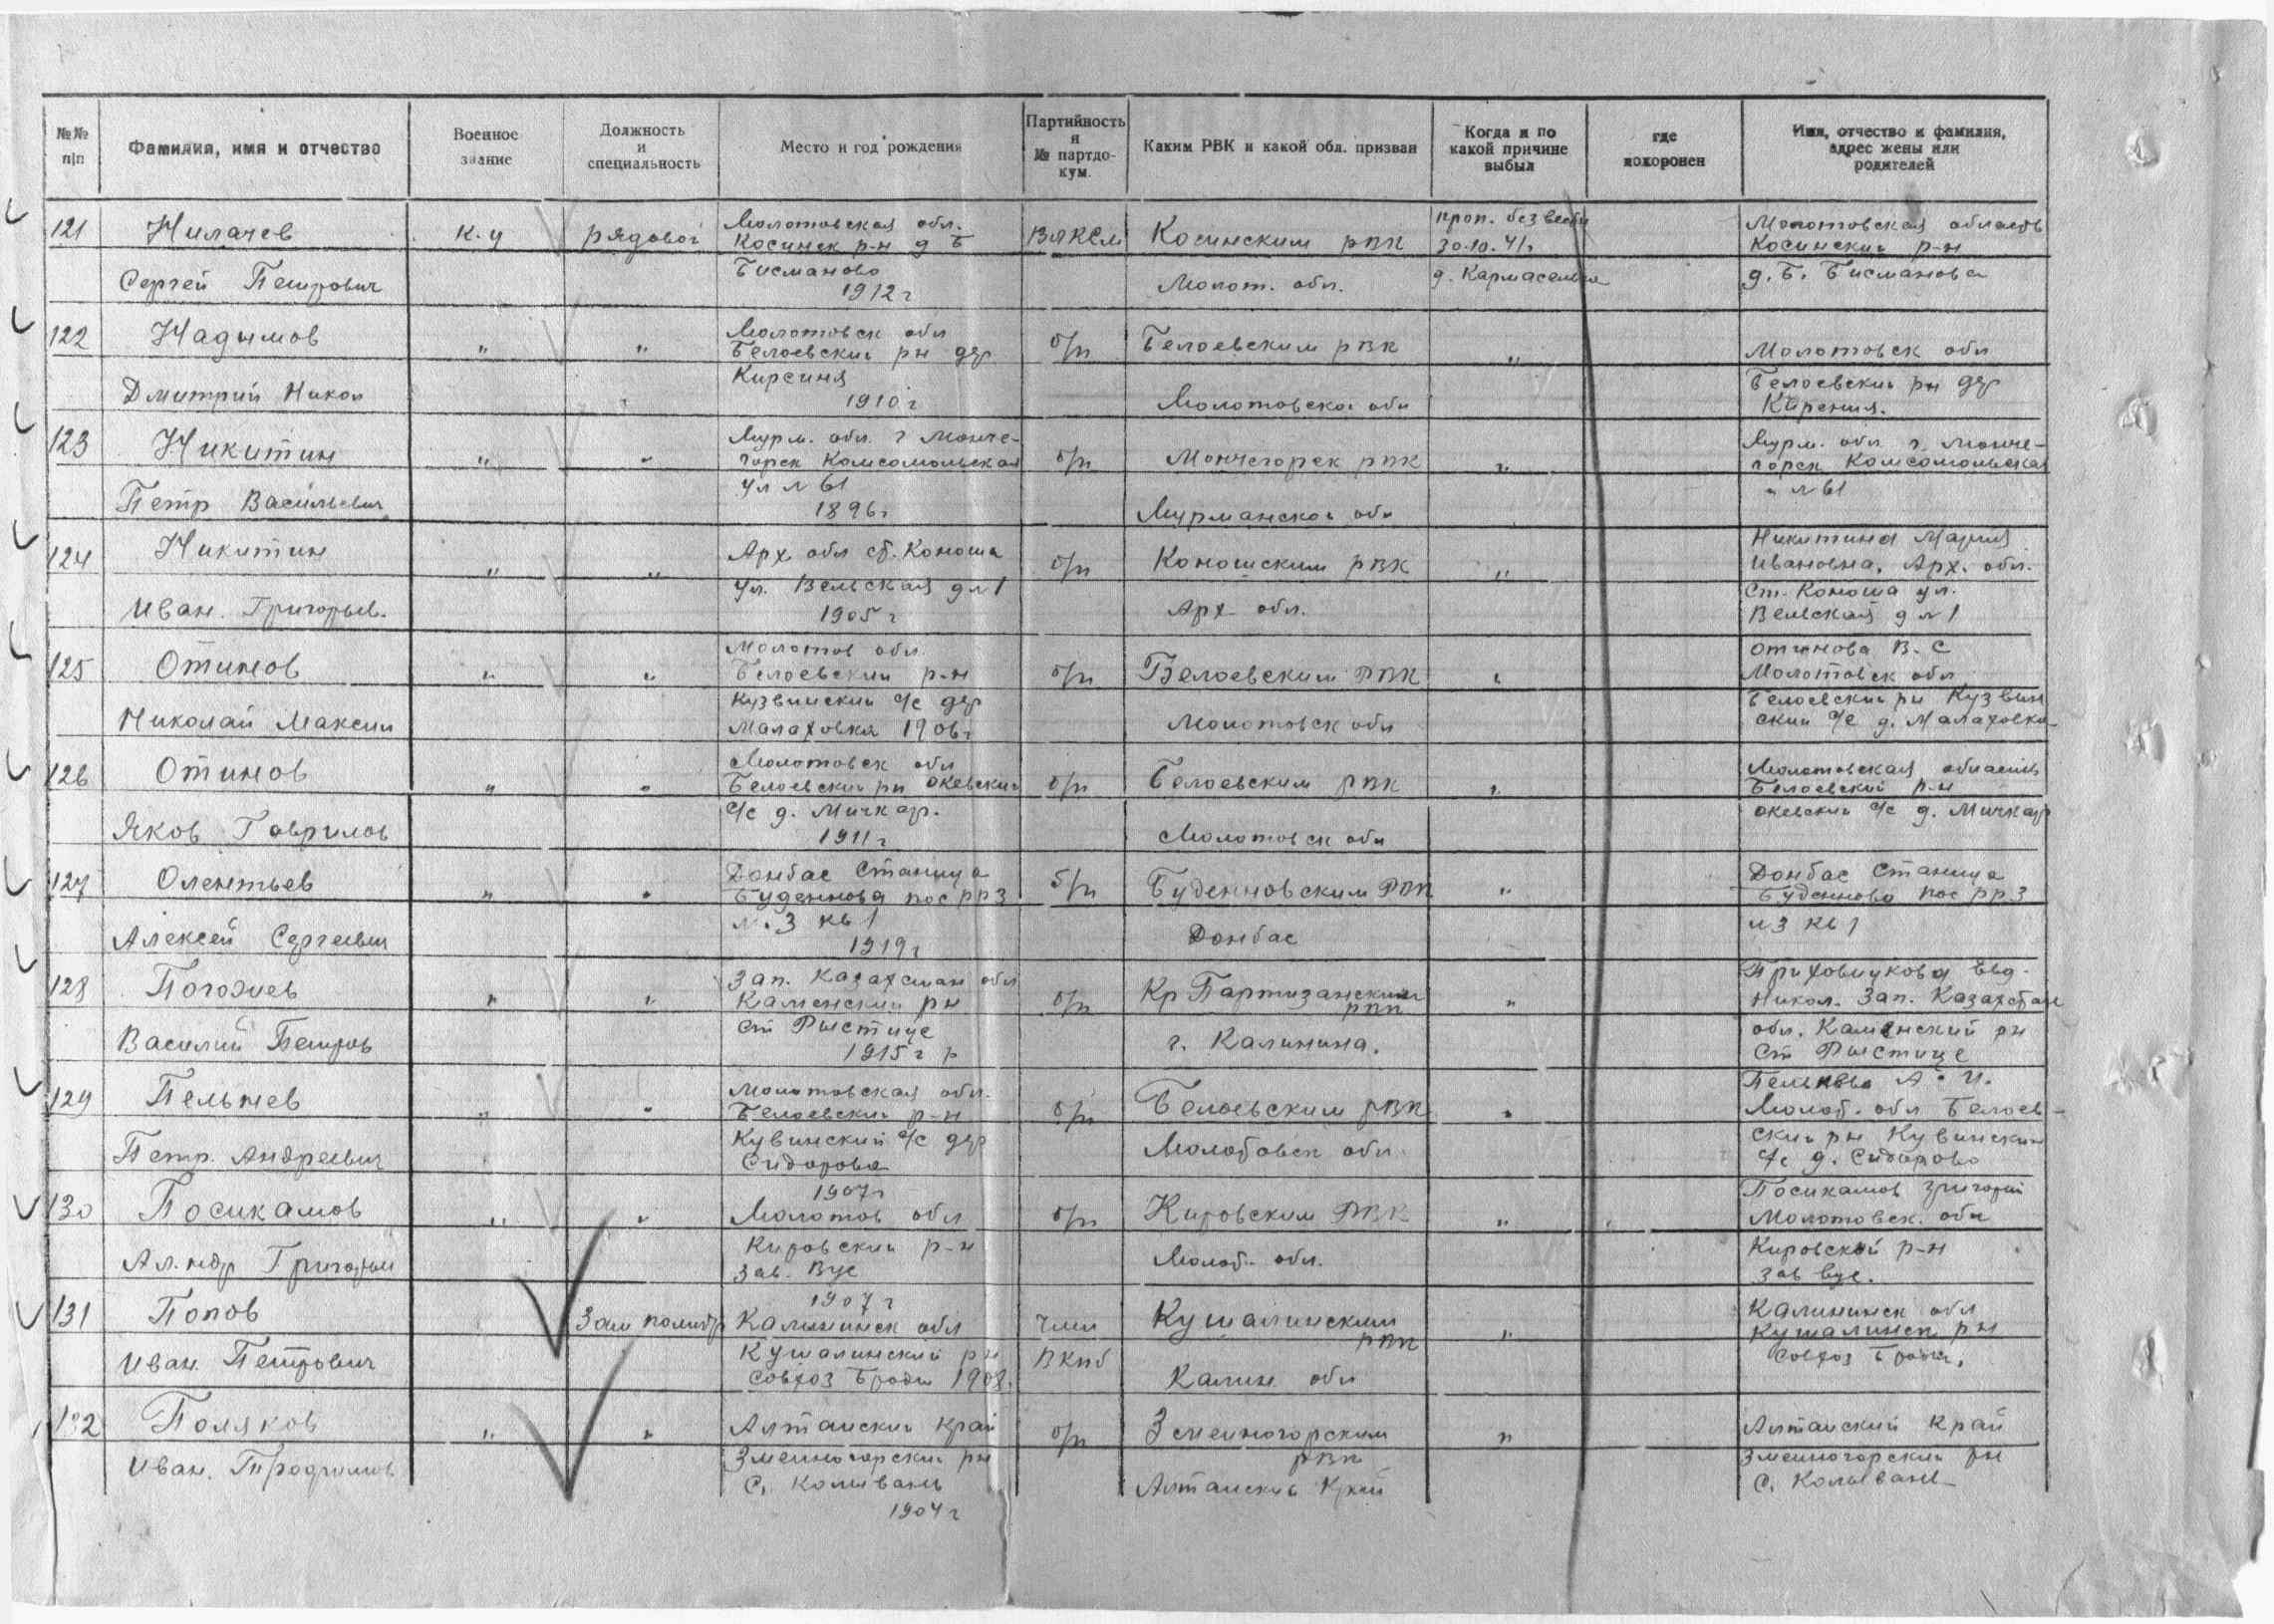 №№ п/п
Фамилия, имя и отчество
Военное звание
Должность и специальность
Место и год рождения
Партийность и № партдокум.
Каким РВК и какой обл. призван
Когда и по какой причине выбыл
где похоронен
Имя, отчество и фамилия, адрес жены или родителей
121 Нилачев к-ц рядовой Молотовская обл. ВЛКСМ Косинским рвк проп. без вести Молотовская область
Косинск р-н д Б 30.10.41г Косинский р-н
Сергей Петрович Бисманово Молот. обл. д. Кармасельга д. Б. Бисманова
1912 г
122 Надымов " " Молотовск обл б/п Белоевским рвк " Молотовск обл
Белоевский рн дер
Дмитрий Никол Кирсиня Молотовской обл Белоевский рн дер
1910 г Кирсиния.
123 Никитин " " Мурм. обл. г Монче- б/п Мончегорск рвк " Мурм. обл г. Монче-
горск Комсомольская горск Комсомольская
Петр Васильевич ул № 61 Мурманской обл " № 61
1896г
124 Никитин " " Арх. обл ст. Коноша б/п Коношским рвк " Никитина Мария
Ивановна, Арх. обл.
Иван. Григорьев. ул. Вельская д № 1 Арх. обл. Ст. Коноша ул.
1905 г Вельская д № 1
125 Отинов " " Молотов обл. б/п Белоевским РВК " Отинова В. С
Белоевский р-н Молотовск обл
Николай Максим Кузвинский с/с дер Молотовск обл Белоевский рн Кузвин
Малаховка 1906г ский с/с д. Малаховка
126 Отинов " " Молотовск обл б/п Белоевским рвк " Молотовская область
Белоевский рн Окевский Белоевский р-н
Яков Гаврилов с/с д. Мичкар. Молотовск обл Окевский с/с д. Мичкар
1911 г
127 Олентьев " " Донбас Станица б/п Буденновским РВК " Донбас Станица
Буденнова пос рр3 Буденново пос рр3
Алексей Сергеевич №. 3 кв 1 Донбас № 3 кв 1
1919 г
128 Погожев " " Зап. Казахстан обл б/п Кр Партизанским " Евд.
Каменский рн рвк Никол. Зап. Казахстан
Василий Петров ст Рыстице г. Калинина. обл. Каменский рн
1915 г р ст Рыстице
129 Пельнев " " Молотовская обл. б/п Белоевским рвк " А. И.
Белоевский р-н Молот. обл Белоев-
Петр. Андреевич Кувинский с/с дер Молотовск обл ский рн Кувинский
Сидорова с/с д. Сидорово
1907г
130 Посикамов " " Молотов обл б/п Кировским РВК " Посикамов Григорий
Молотовск. обл
Ал.ндр Григорьи Кировский р-н Молот. обл. Кировский р-н
Зав. Вус Зав вус.
1907 г
131 Попов Зам политр Калининск обл член Кушалинским " Калининск обл
рвк Кушалинск рн
Иван. Петрович Кушалинский рн ВКПб Калин. обл совхоз Броды,
Совхоз Броды 1908.
132 Поляков " " Алтайский край б/п Змеиногорским " Алтайский край
Змеиногорский рн рвк Змеиногорский рн
Иван. Трофимов С. Колывань Алтайский Край С. Колывань
1904 г